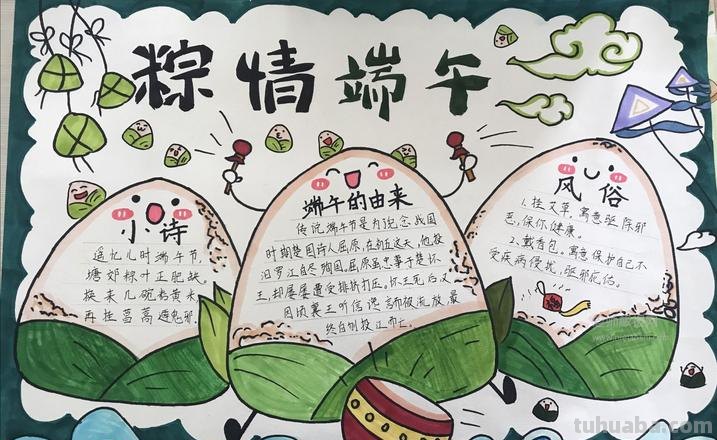 粽情端午
小诗
遥忆儿时端午节,
塘郊粽叶正肥缺.
换来几碗的黄米,
再挂菖蒿避鬼邪.
端午的由来
传说端午节是为纪念战国
时期楚国诗人屈原,在初五这天,他投
汨罗江自尽殉国.屈原虽忠事于楚怀
王,却屡屡遭受排挤打压.怀王死后又
因顷襄王听信谗而被流放,最
终自刎投江而亡.
风俗
1.挂艾草,寓意驱除邪
恶,保你健康.
2.戴香包,寓意保护自己不
受疾病侵扰,驱邪庇佑.
tuhuaba.com